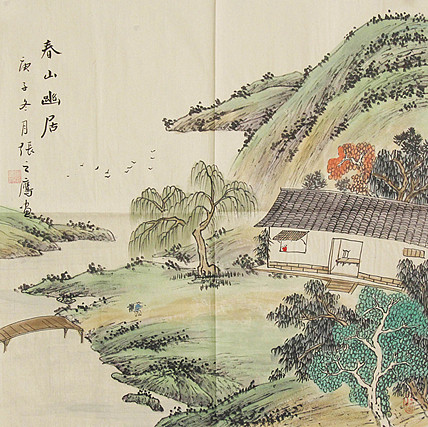 春山幽居
庚子冬月張之鷹画